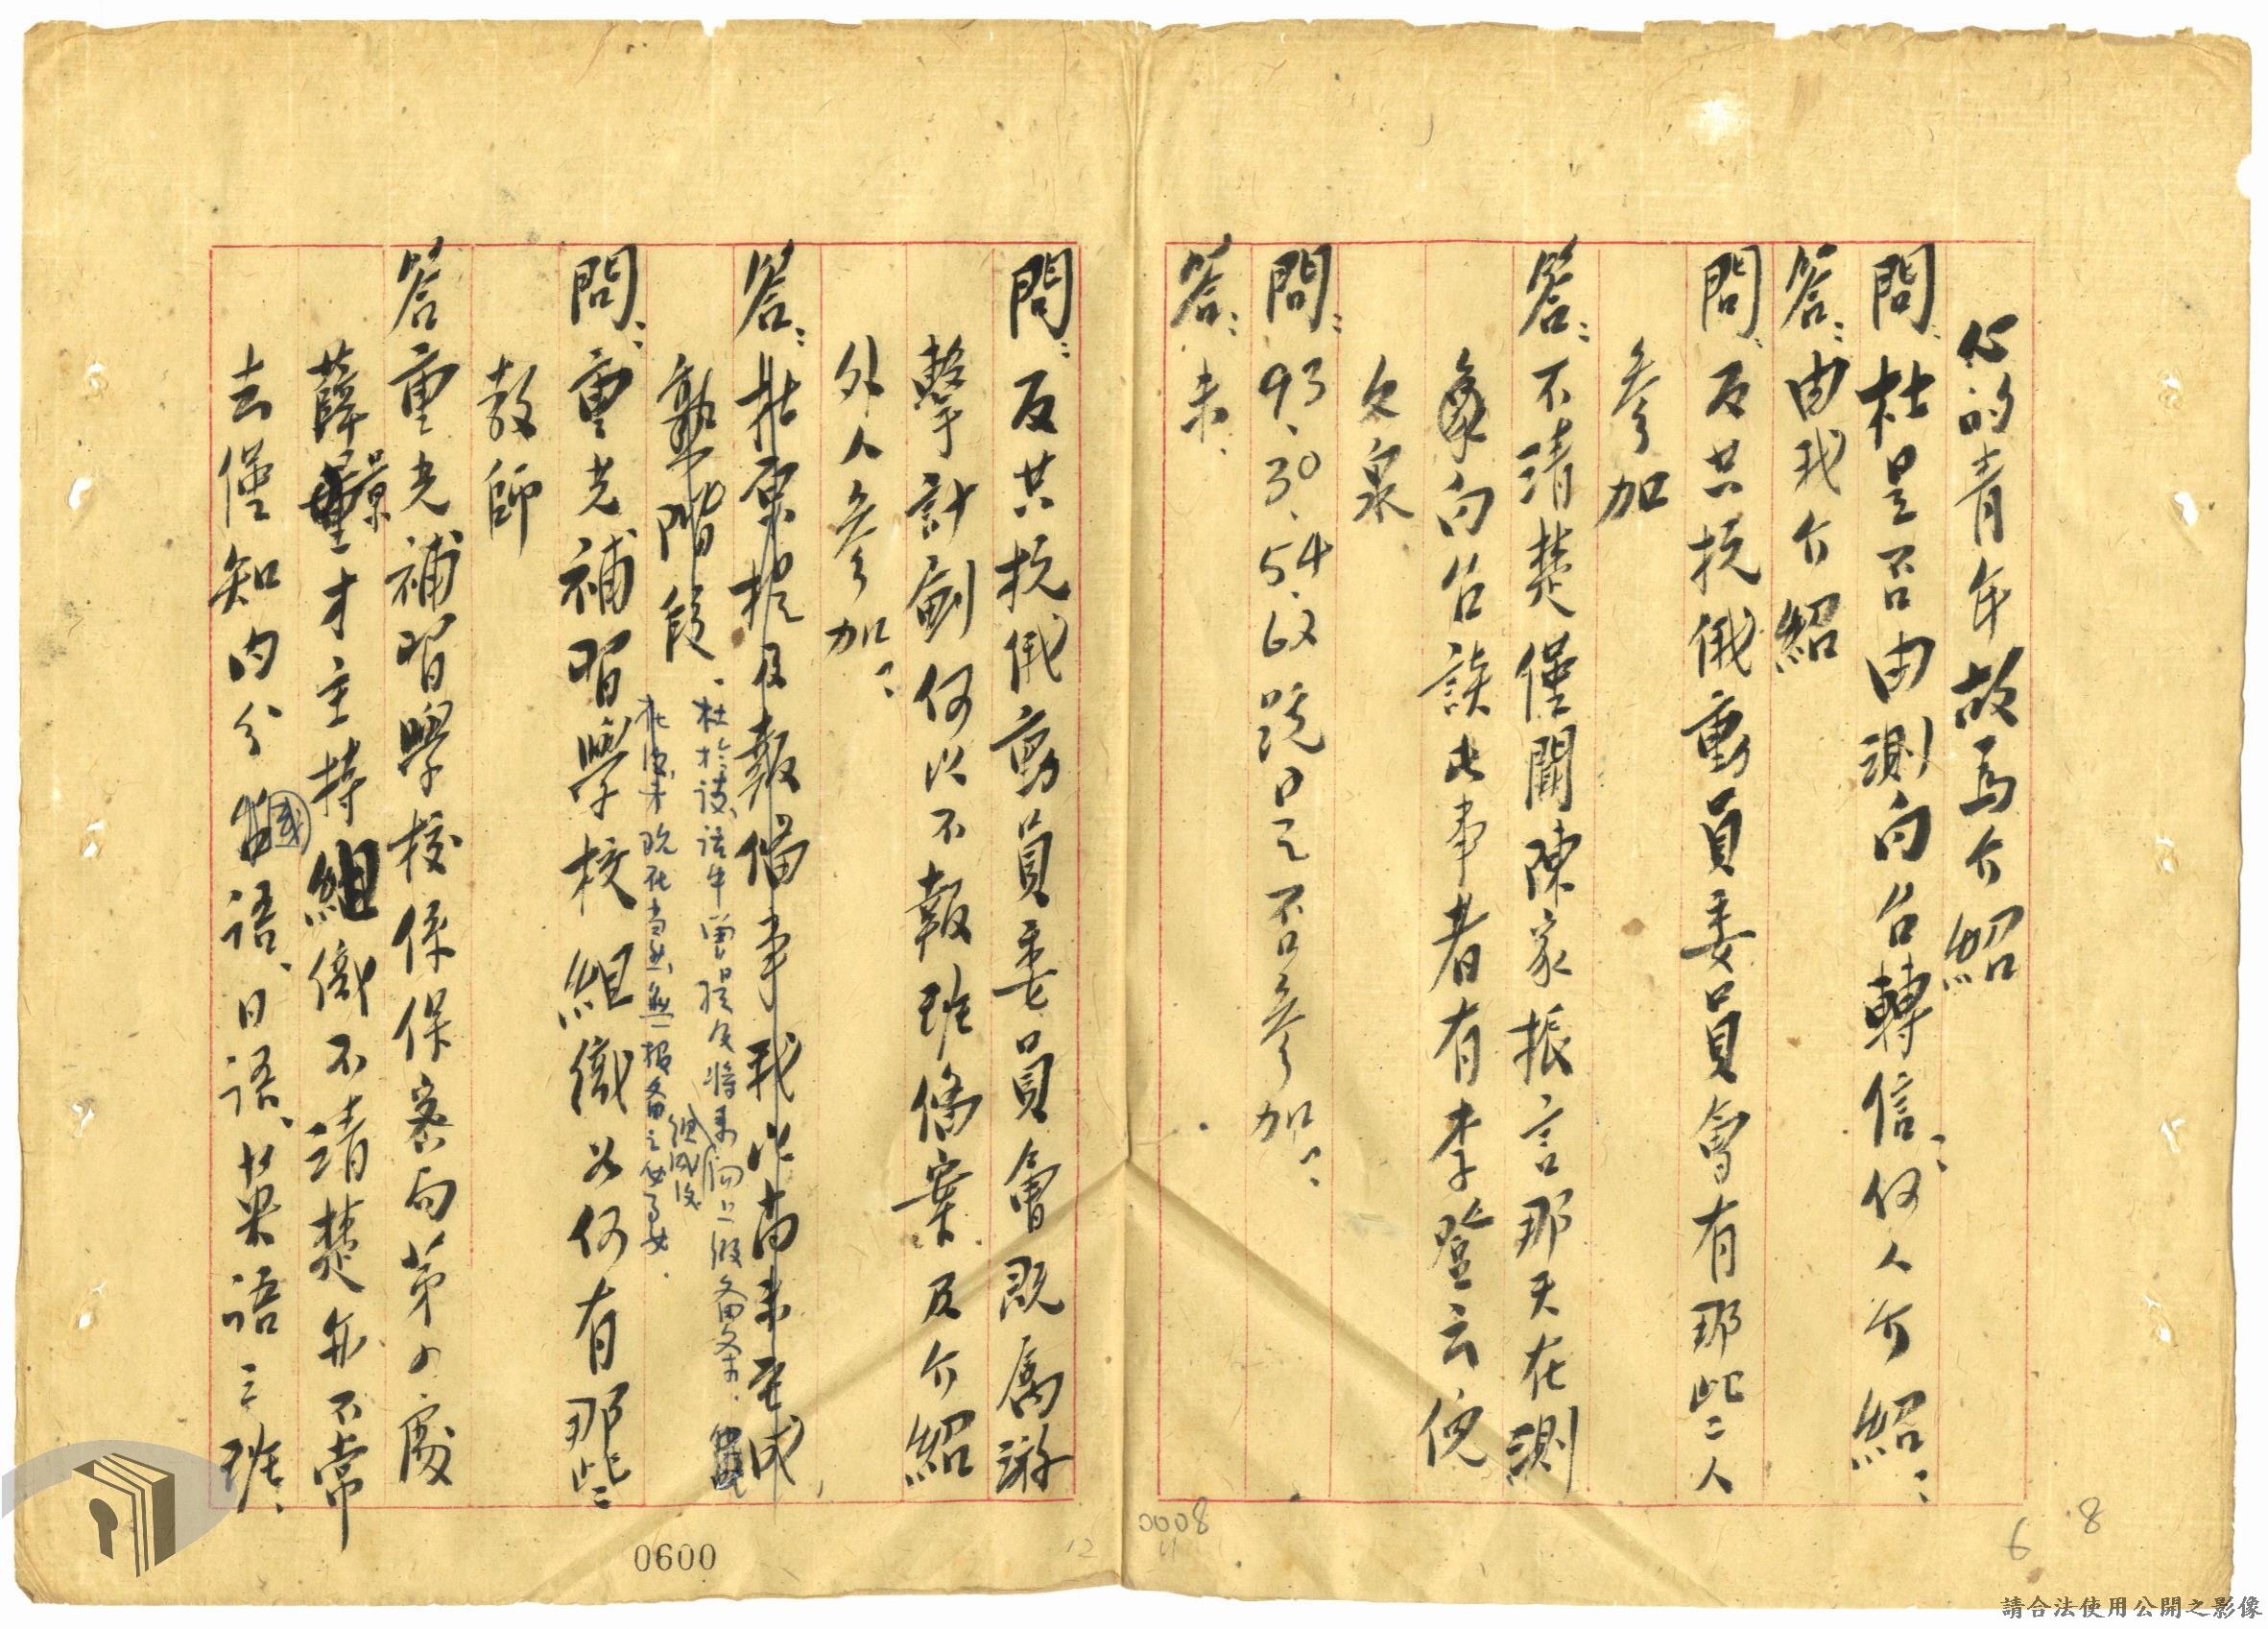 心的青年故為介紹
問:杜是否由測向台轉信:何人介紹:
答:由我介紹
問:反共抗俄動員委員會有那些人
參加
答:不清楚僅聞陳家振言那天在測
向台談此事者有李登云倪
文泉
問:93.30.54.62號是否參加:
答:未.
問:反共抗俄動員委員會既屬游
擊計劃何以不報班備案及介紹
外人參加:
答:杜原提及報備事我以尚未至成
熟階段.
杜於談話中曾提及將來向上級备案.
組成後
此後未 現在当然無报备之必要
問:重光補習學校組織如何有那些
教師
答重光補習學校係保密局第四處
薛景才主持組織不清楚亦不常
去僅知內分國語、日語、英語三班.
0600
0008
11
12
6
8
請合法使用公開之影像